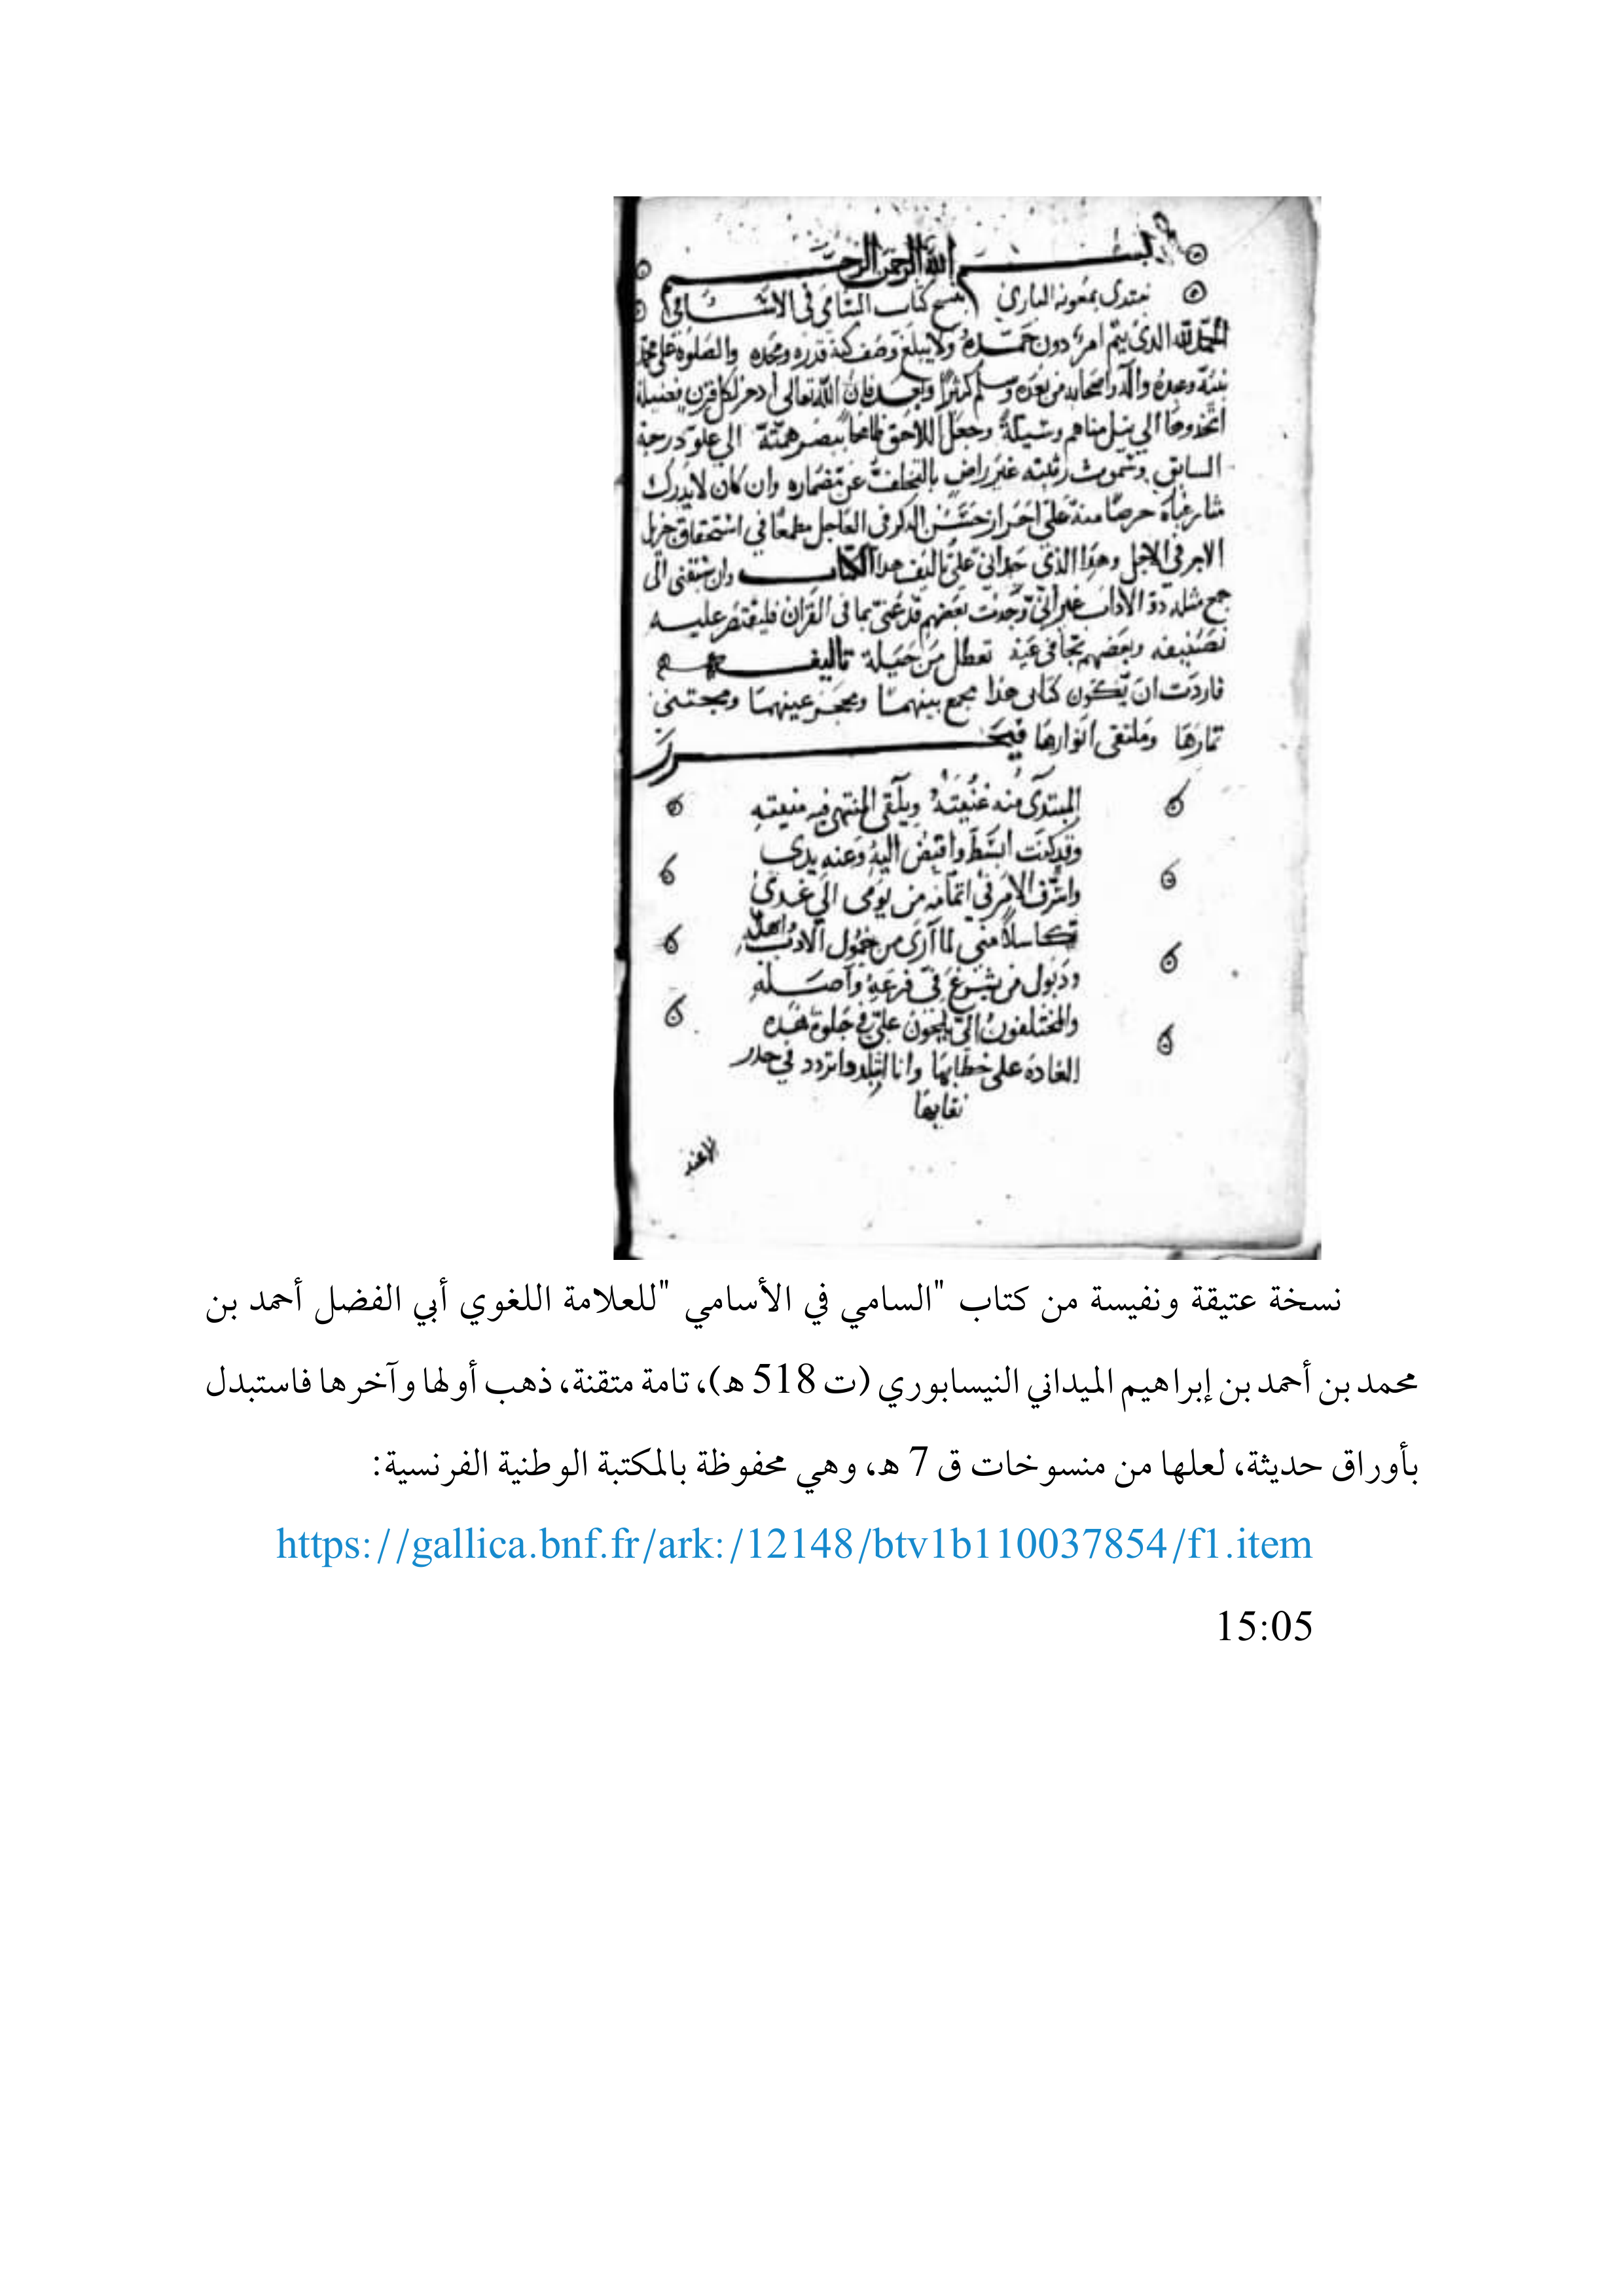 بسم الله الرحمن الرحيم
نبتدى بمعونه البارى بنسخ كتاب السامى فى الاسامى
الحمد لله الذى يتم امر دون حمده ولا يبلغ وصف كنه قدره ومجده والصلوة على محمد
نبيه وعبده وآله واصحابه من بعده وسلم كثيرا فان الله تعالى لكل قرن فضيلة
اتخذوها الى نيل مناهم وسيلة وجعل اللاحق طامحا ببصر همته الى علو درجة
السابق وسموت رتبته غير راض بالتخلف عن مضماره وان كان لا يدرك
حرصا منه على احراز حسن الذكر فى العاجل مطمعا فى استحقاق جزيل
الاجر فى الاجل وهذا الذى حدانى على تاليف هذا الكتاب وان سبقنى الى
جمع مثله الاداب غير انى وجدت بعضهم قد عنى بما فى القران فليقتصر عليه
تصنيفه وبعضهم تجافى عنه تعطل من تاليفه
فاردت ان يكون كتابى هذا مجمع بينهما ومحجر عينهما ومجتنى
ثمارها وملتقى انوارها
المبتدى منه ويلقى المنتهى فيه منيعته
وقد كنت ابسط واقبض اليه وعنه يدى
الامر فى اتمامه من يومى الى غدى
تكاسلا منى لما ارى من خمول الادب واهله
وذبول من فى فرعه واصله
والمختلفون الى يلحون على فى جلوة هذه
الغادة على خطابها وانا اتبلد واتردد فى
نقابها
لا عند
نسخة عتيقة ونفيسة من كتاب "السامي في الأسامي "للعلامة اللغوي أبي الفضل أحمد بن
محمد بن أحمد بن إبراهيم الميداني النيسابوري (ت 518 ه)، تامة متقنة، ذهب أولها وآخرها فاستبدل
بأوراق حديثة، لعلها من منسوخات ق 7 ه، وهي محفوظة بالمكتبة الوطنية الفرنسية:
https://gallica.bnf.fr/ark:/12148/btv1b110037854/f1.item
15:05